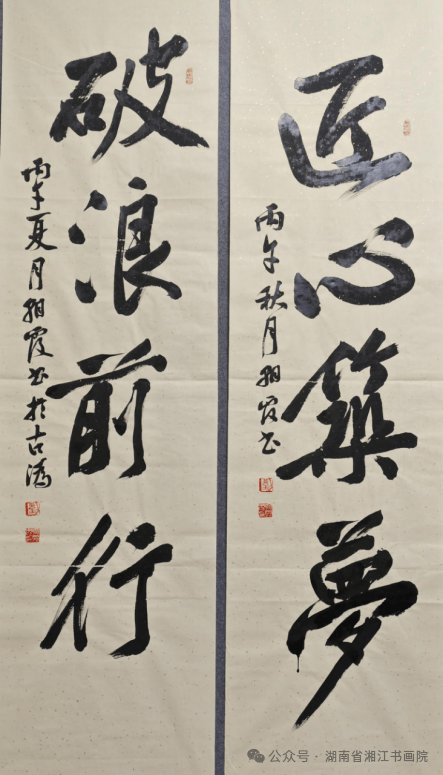 匠心築夢
丙午秋月霞书
破浪前行
丙午夏月霞书於古
公众号·湖南省湘江书画院